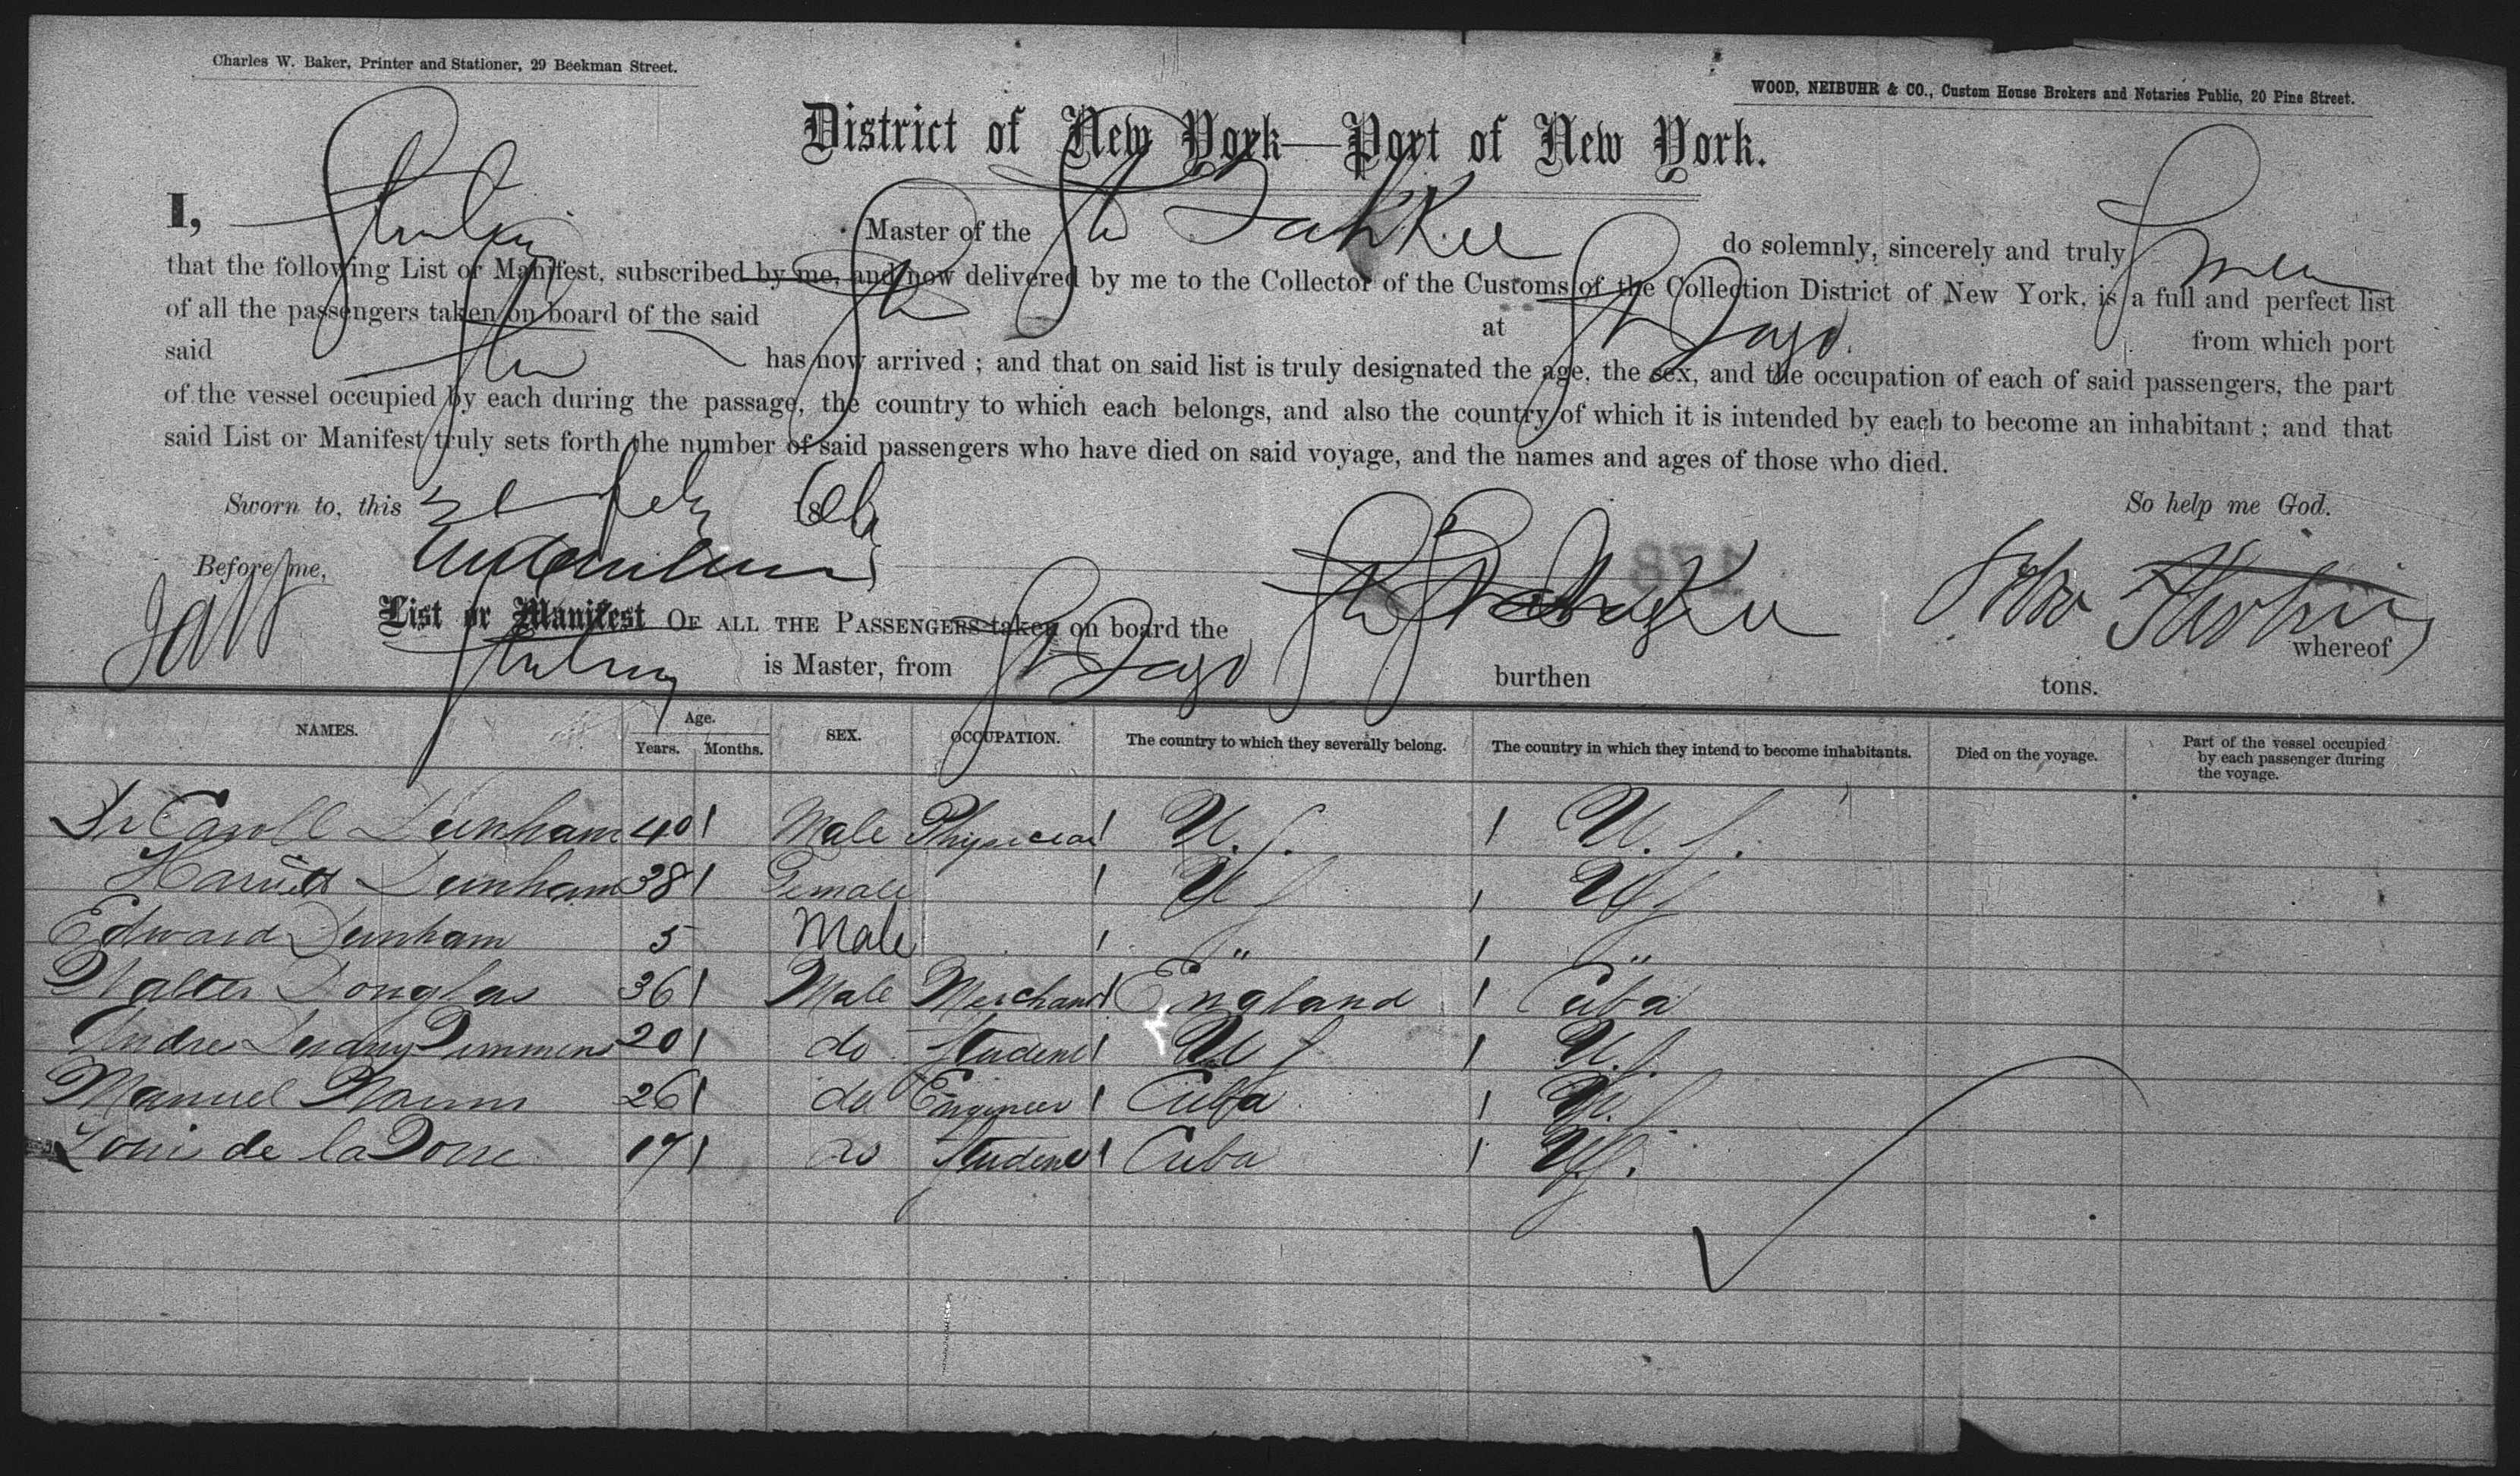 Charles W. Baker, Printer and Stationer, 29 Beekman Street.
WOOD, NEIBUHR & CO., Custom House Brokers and Notaries Public, 20 Pine Street.
District of New York—Port of New York.
I, Master of the do solemnly, sincerely and truly
that the following List or Manifest, subscribed by me, and now delivered by me to the Collector of the Customs of the Collection District of New York, is a full and perfect list
of all the passengers taken on board of the said at from which port
said has now arrived ; and that on said list is truly designated the age, the sex, and the occupation of each of said passengers, the part
of the vessel occupied by each during the passage, the country to which each belongs, and also the country of which it is intended by each to become an inhabitant ; and that
said List or Manifest truly sets forth the number of said passengers who have died on said voyage, and the names and ages of those who died.
Sworn to, this So help me God.
Before me,
178
List or Manifest OF ALL THE PASSENGERS taken on board the whereof
is Master, from burthen tons.
NAMES. Age. Years. Months. SEX. OCCUPATION. The country to which they severally belong. The country in which they intend to become inhabitants. Died on the voyage. Part of the vessel occupied by each passenger during the voyage.
Dr Caroll Dunham 40 Male Physician U. S. U. S.
Harriett Dunham 38 Female U S U S
Edward Dunham 5 Male " "
Walter Douglas 36 Male Merchant England Cuba
Andre 20 do Student U S U. S.
Manuel 26 do Engineer Cuba U. S.
Louis de la 17 do Student Cuba U. S.